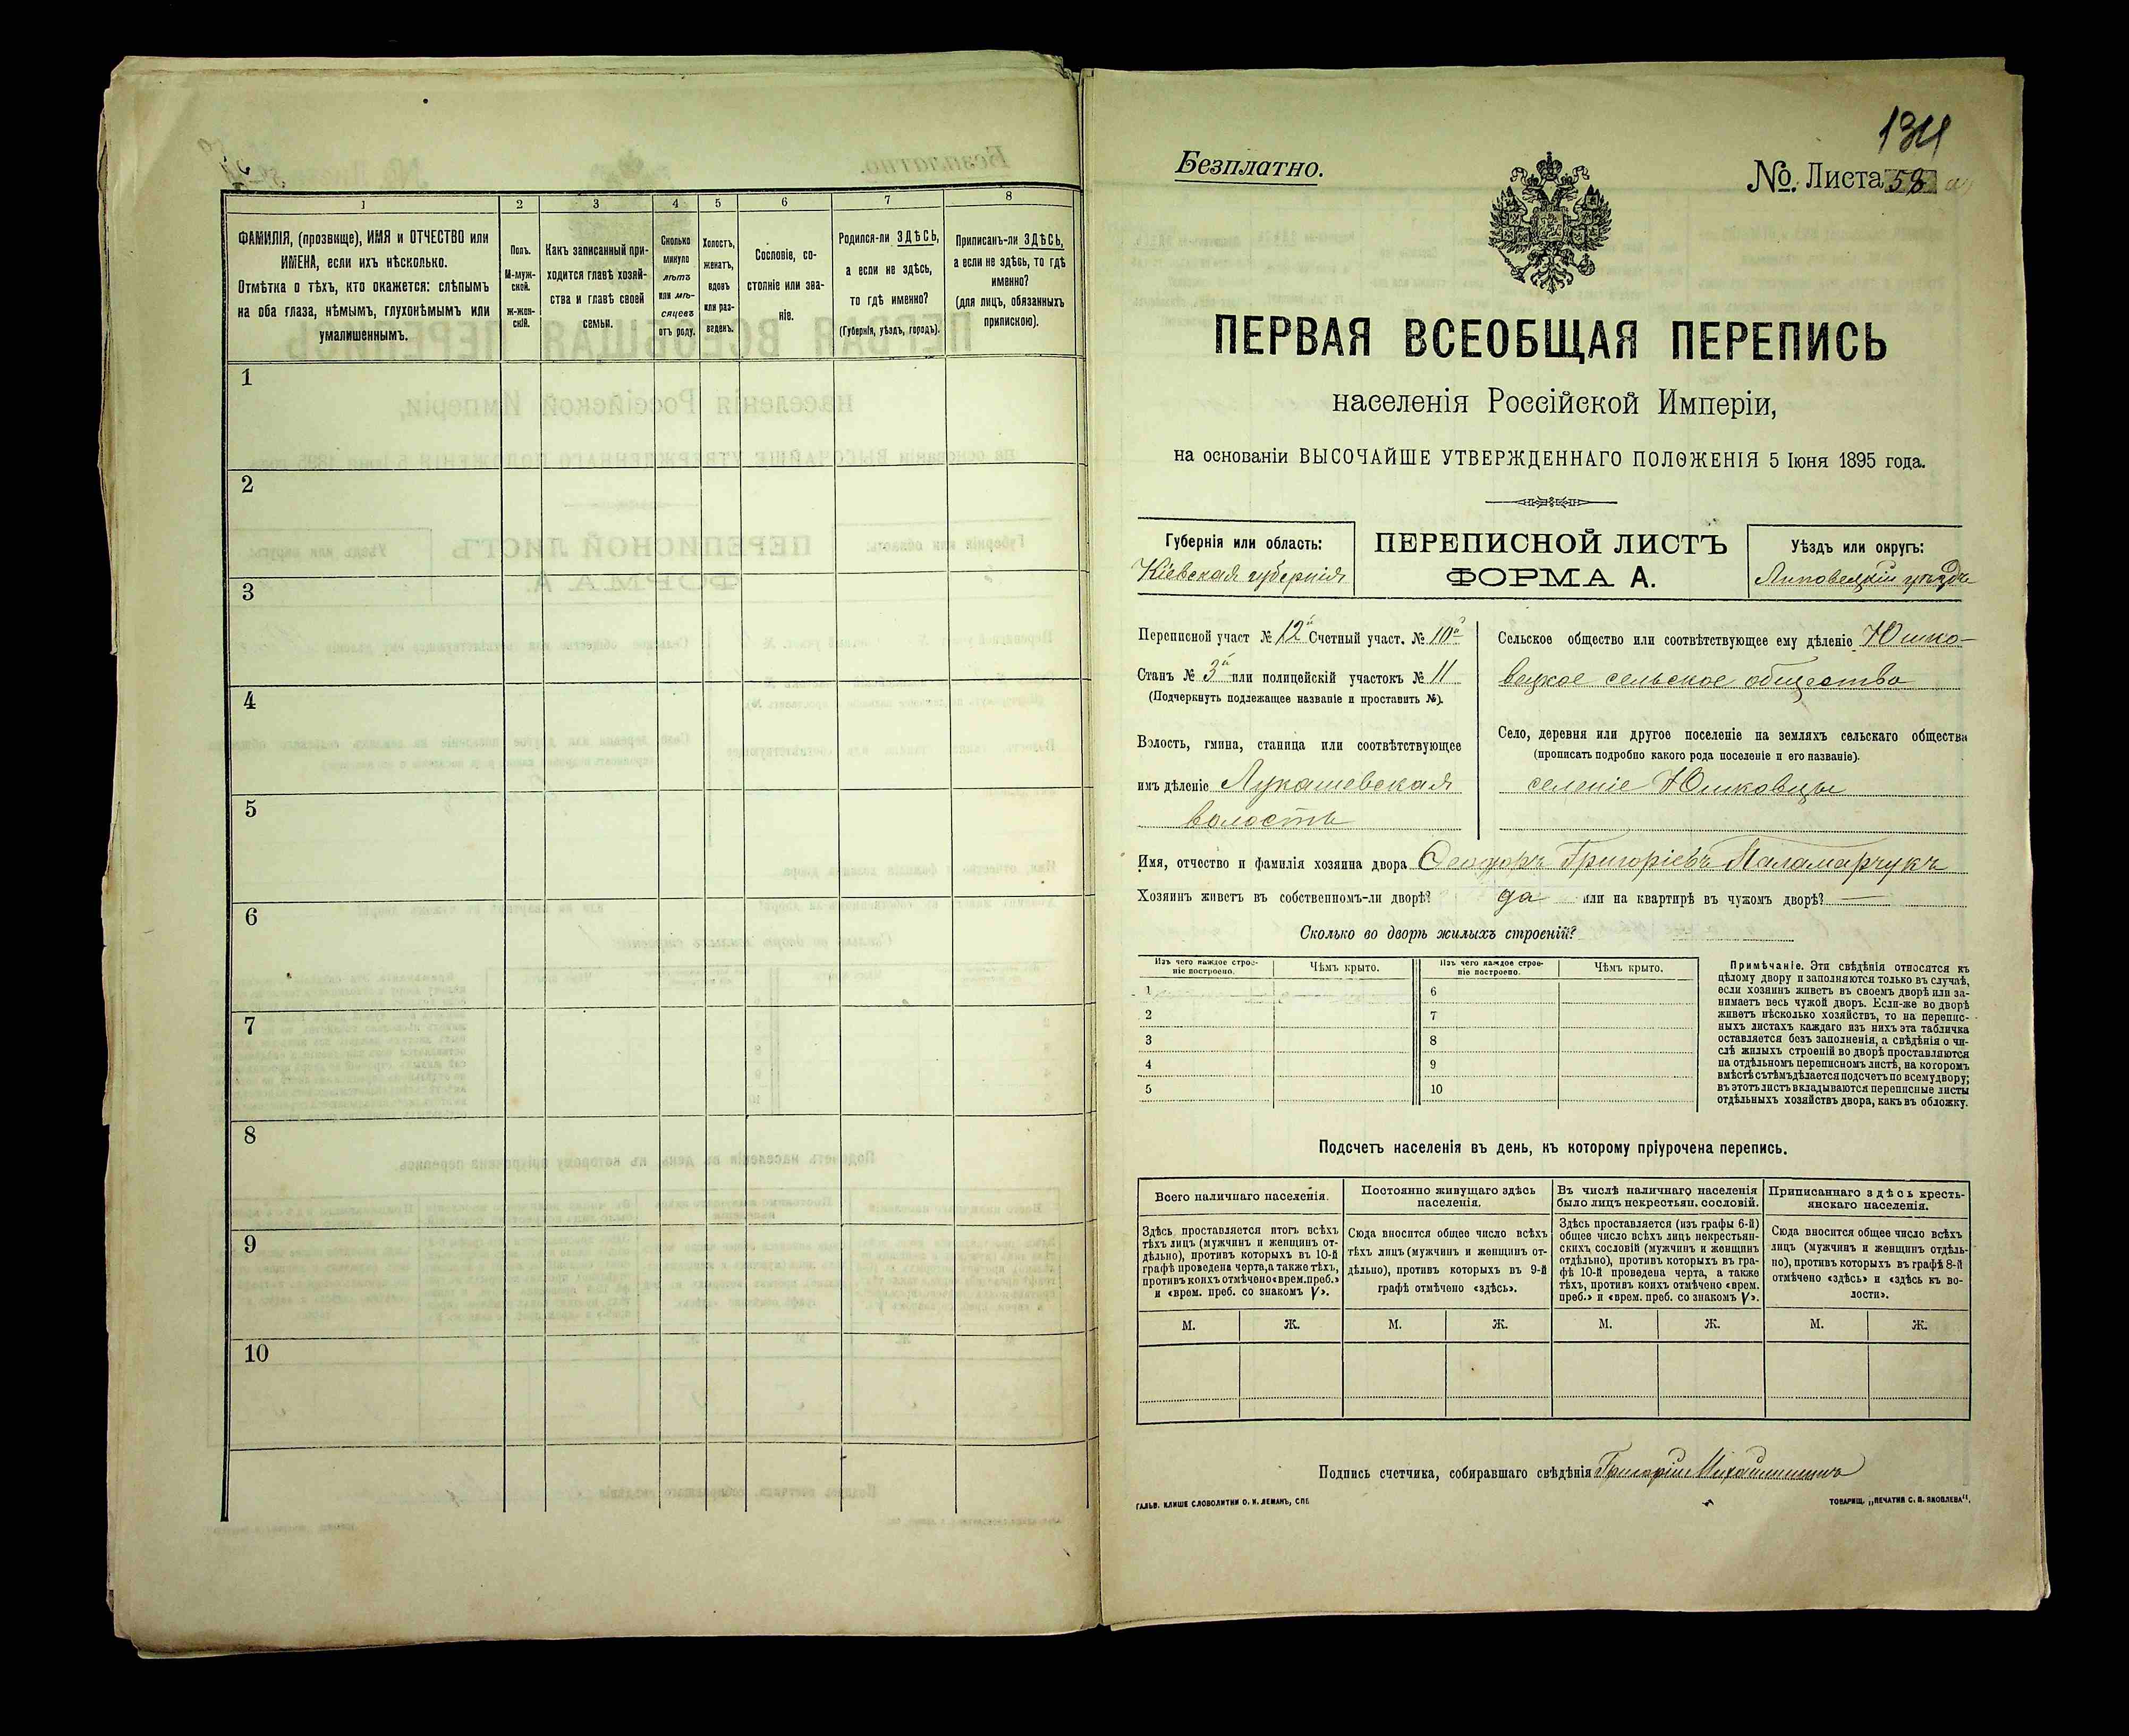 1
2
3
4
5
6
7
8
ФАМИЛІЯ, (прозвище), ИМЯ и ОТЧЕСТВО или
ИМЕНА, если ихъ нѣсколько.
Отмѣтка о тѣхъ, кто окажется: слѣпымъ
на оба глаза, нѣмымъ, глухонѣмымъ или
умалишеннымъ.
Полъ.
М-муж-
ской.
Ж-жен-
скій.
Какъ записанный при-
ходится главѣ хозяй-
ства и главѣ своей
семьи.
Сколько
минуло
лѣтъ
или мѣ-
сяцевъ
отъ роду.
Холостъ,
женатъ,
вдовъ
или раз-
веденъ.
Сословіе, со-
стояніе или зва-
ніе.
Родился-ли ЗДѢСЬ,
а если не здѣсь,
то гдѣ именно?
(Губернія, уѣздъ, городъ).
Приписанъ-ли ЗДѢСЬ,
а если не здѣсь, то гдѣ
именно?
(для лицъ, обязанныхъ
припискою).
1
2
3
4
5
6
7
8
9
10
134
Безплатно.
№ Листа 58
ПЕРВАЯ ВСЕОБЩАЯ ПЕРЕПИСЬ
населенія Россійской Имперіи,
на основаніи ВЫСОЧАЙШЕ УТВЕРЖДЕННАГО ПОЛОЖЕНІЯ 5 Іюня 1895 года.
Губернія или область:
Кіевская губернія
ПЕРЕПИСНОЙ ЛИСТЪ
ФОРМА А.
Уѣздъ или округъ:
Липовецкій уѣздъ
Переписной участ № 12й Счетный участ. № 10й
Станъ № 3й или полицейскій участокъ № 11
(Подчеркнуть подлежащее названіе и проставить №).
Волость, гмина, станица или соотвѣтствующее
имъ дѣленіе Лукашевская
волость
Сельское общество или соотвѣтствующее ему дѣленіе Юшко-
вецкое сельское общество
Село, деревня или другое поселеніе на земляхъ сельскаго общества
(прописать подробно какого рода поселеніе и его названіе).
селеніе Юшковцы
Имя, отчество и фамилія хозяина двора Ѳеодоръ Григоріевъ Паламарчукъ
Хозяинъ живетъ въ собственномъ-ли дворѣ? да или на квартирѣ въ чужомъ дворѣ? —
Сколько во дворѣ жилыхъ строеній?
Изъ чего каждое строе-
ніе построено.
Чѣмъ крыто.
Изъ чего каждое строе-
ніе построено.
Чѣмъ крыто.
1
2
3
4
5
6
7
8
9
10
Примѣчаніе. Эти свѣдѣнія относятся къ
цѣлому двору и заполняются только въ случаѣ,
если хозяинъ живетъ въ своемъ дворѣ или за-
нимаетъ весь чужой дворъ. Если-же во дворѣ
живетъ нѣсколько хозяйствъ, то на перепис-
ныхъ листахъ каждаго изъ нихъ эта табличка
оставляется безъ заполненія, а свѣдѣнія о чи-
слѣ жилыхъ строеній во дворѣ проставляются
на отдѣльномъ переписномъ листѣ, на которомъ
вмѣстѣ съ тѣмъ дѣлается подсчетъ по всему двору;
въ этотъ листъ вкладываются переписные листы
отдѣльныхъ хозяйствъ двора, какъ въ обложку.
Подсчетъ населенія въ день, къ которому пріурочена перепись.
Всего наличнаго населенія.
Здѣсь проставляется итогъ всѣхъ
тѣхъ лицъ (мужчинъ и женщинъ от-
дѣльно), противъ которыхъ въ 10-й
графѣ проведена черта, а также тѣхъ,
противъ коихъ отмѣчено «врем. преб.»
и «врем. преб. со знакомъ V».
Постоянно живущаго здѣсь
населенія.
Сюда вносится общее число всѣхъ
тѣхъ лицъ (мужчинъ и женщинъ от-
дѣльно), противъ которыхъ въ 9-й
графѣ отмѣчено «здѣсь».
Въ числѣ наличнаго населенія
было лицъ некрестьян. сословій.
Здѣсь проставляется (изъ графы 6-й)
общее число всѣхъ лицъ некрестьян-
скихъ сословій (мужчинъ и женщинъ
отдѣльно), противъ которыхъ въ гра-
фѣ 10-й проведена черта, а также
тѣхъ, противъ коихъ отмѣчено «врем.
преб.» и «врем. преб. со знакомъ V».
Приписаннаго здѣсь кресть-
янскаго населенія.
Сюда вносится общее число всѣхъ
лицъ (мужчинъ и женщинъ отдѣль-
но), противъ которыхъ въ графѣ 8-й
отмѣчено «здѣсь» и «здѣсь къ во-
лости».
М. Ж. М. Ж. М. Ж. М. Ж.
Подпись счетчика, собиравшаго свѣдѣнія Григорій
ГАЛЬВ. КЛИШЕ СЛОВОЛИТНИ О. И. ЛЕМАНЪ, СПБ.
ТОВАРИЩ. „ПЕЧАТНЯ С. П. ЯКОВЛЕВА“.